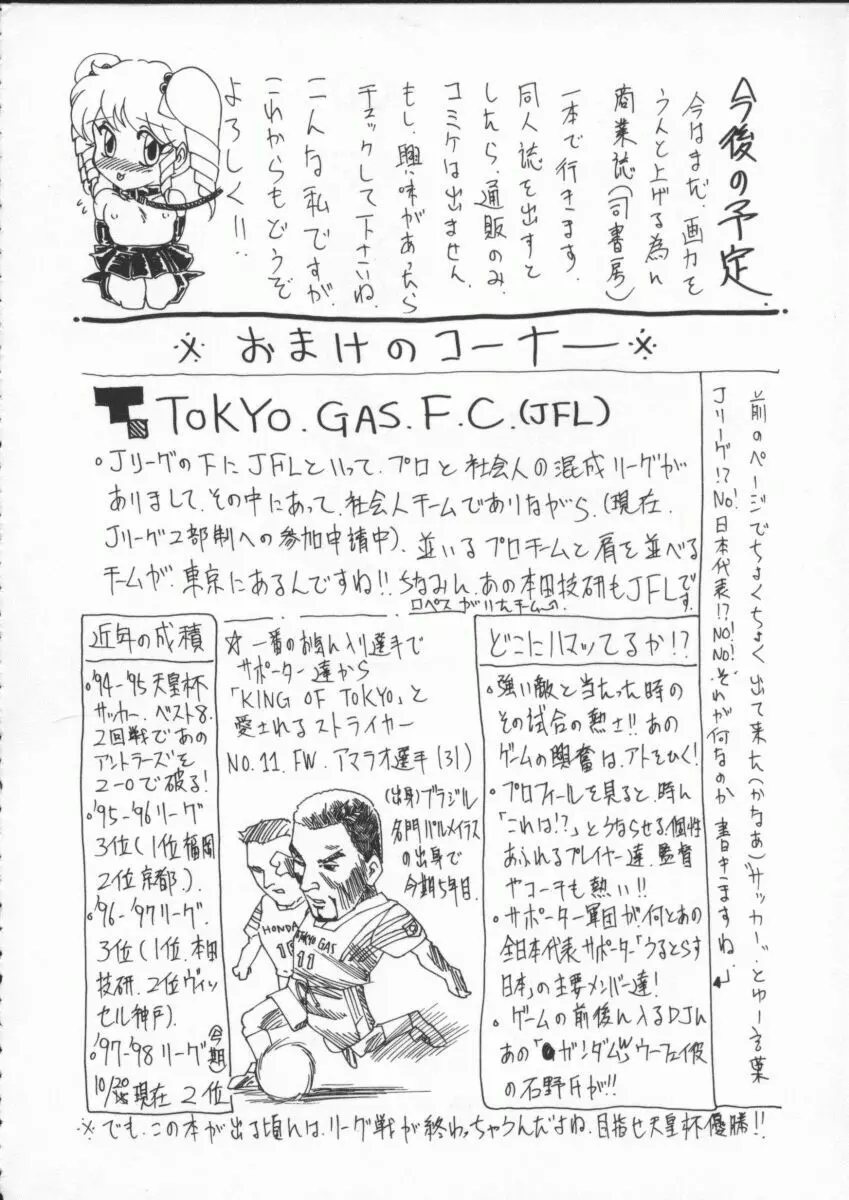 今後の予定
今はまだ、画力を
うんと上げる為に
商業誌(司書房)
一本で行きます。
同人誌を出すと
したら、通販のみ。
コミケは出ません。
もし、興味があったら
チェックして下さいね。
こんな私ですが、
これからもどうぞ
よろしく!!
※おまけのコーナー※
前のページでちょくちょく出て来た(かなあ)“サッカー”とゆー言葉
Jリーグ!?NO!日本代表!?NO!NO!NO!それが何なのか書きますね。
TOKYO.GAS.F.C.(JFL)
○Jリーグの下にJFLといって、プロと社会人の混成リーグが
ありまして、その中にあって、社会人チームでありながら、(現在、
Jリーグ2部制への参加申請中)、並いるプロチームと肩を並べる
チームが、東京にあるんですね!!ちなみに、あの本田技研もJFLです。
ロペスがいたチーム
近年の成績
○'94-'95天皇杯
サッカー、ベスト8。
2回戦であの
アントラーズを
2-0で破る!
○'95-'96リーグ
3位(1位福岡
2位京都)。
○'96-'97リーグ。
3位(1位、本田
技研、2位ヴィッ
セル神戸)。
○'97-'98リーグ(今期)
10/20現在 2位
☆一番のお気に入り選手で
サポーター達から
「KING OF TOKYO」と
愛されるストライカー
NO.11.FW.アマラオ選手(31)
(出身)ブラジル
名門パルメイラス
の出身で
今期5年目。
HONDA
10
TOKYO GAS
11
どこにハマッてるか!?
○強い敵と当たった時の
その試合の熱さ!!あの
ゲームの興奮は、アトをひく!
○プロフィールを見ると、時に
「これは!?」とうならせる、個性
あふれるプレイヤー達、監督
やコーチも熱い!!
○サポーター軍団が、何とあの
全日本代表サポーター「うるとらす
日本」の主要メンバー達!
○ゲームの前後に入るDJに
あの「ガンダムW」ウーフェイ役
の石野氏が!!
※でも、この本が出る頃には、リーグ戦が終わっちゃうんだよね、目指せ天皇杯優勝!!